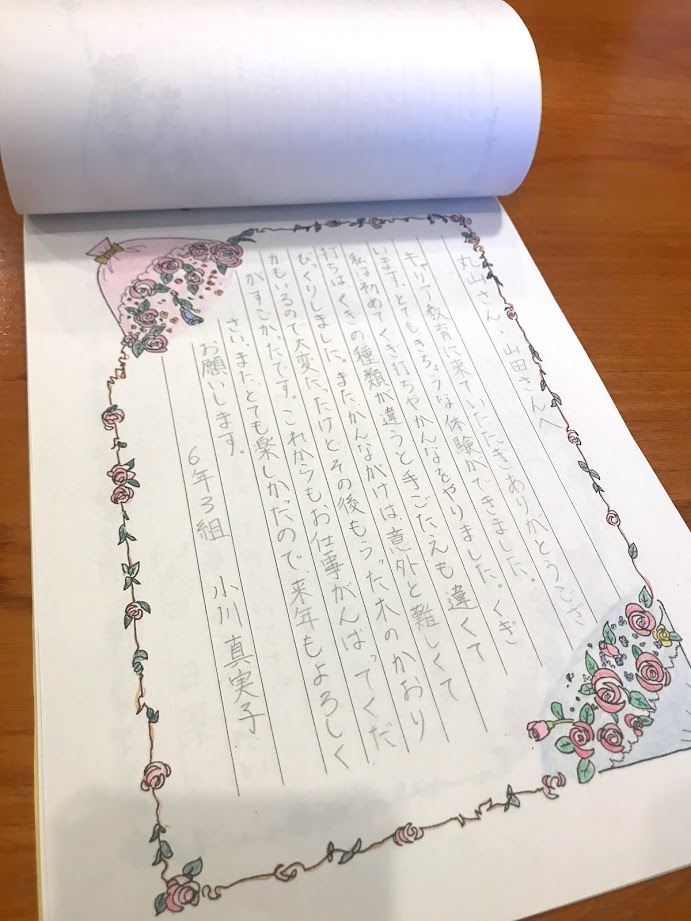 丸山さん、山田さんへ
キャリア教育に来ていただきありがとうござ
います。とてもきちょうな体験ができました。
私は初めてくぎ打ちやかんなをやりました。くぎ
打ちはくぎの種類が違うと手ごたえも違くて
びっくりしました。またかんながけは、意外と難しくて
力もいるので大変だったけどその後もらった木のかおり
がすごかったです。これからもお仕事がんばってくだ
さい。また、とても楽しかったので、来年もよろしく
お願いします。
6年3組 小川真実子